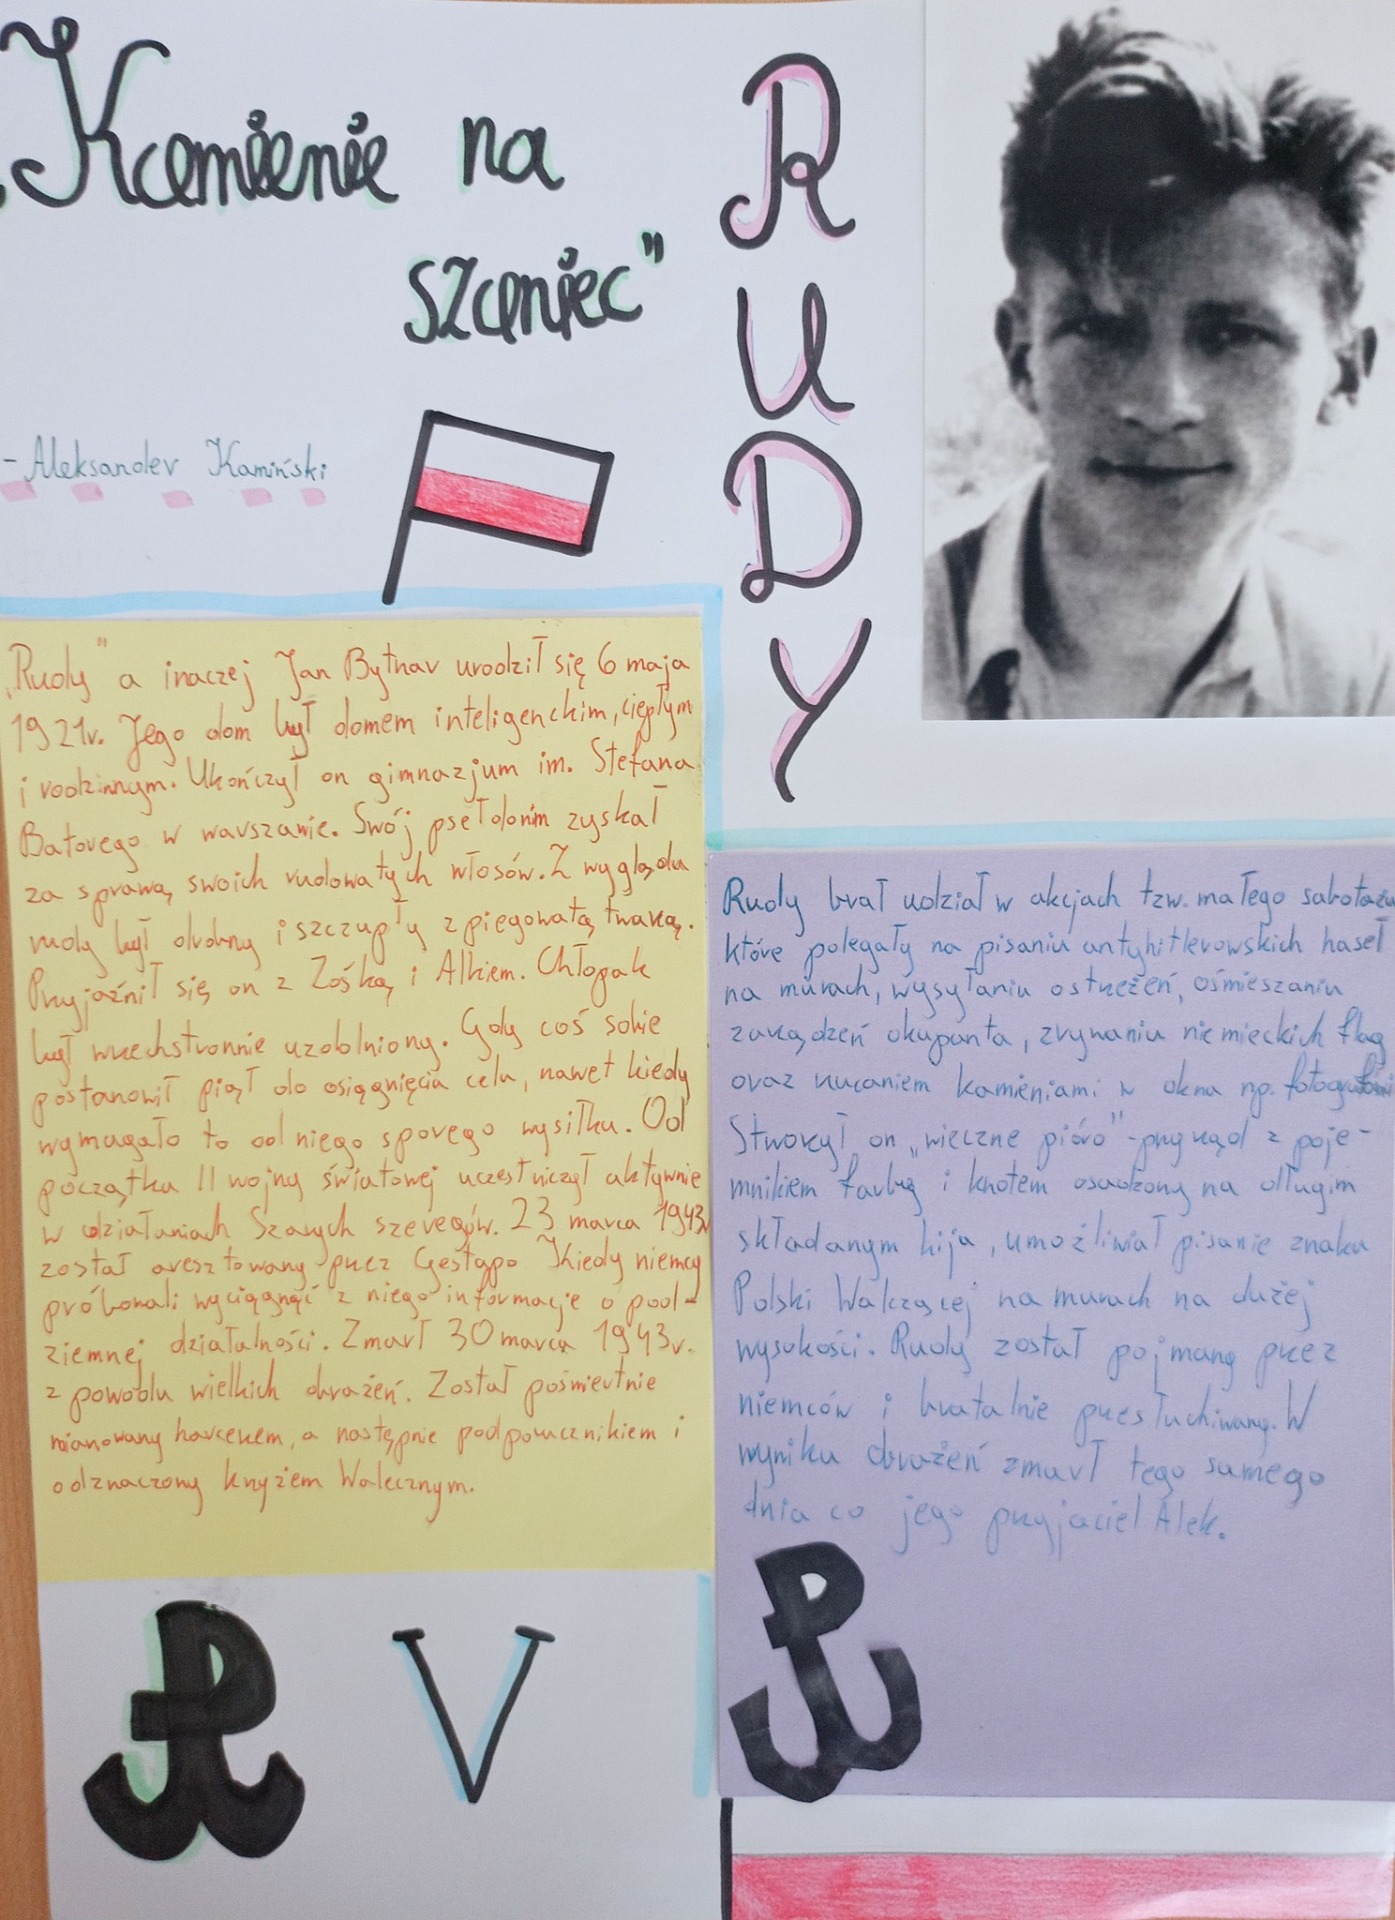 „Kamienie na
szaniec"
- Aleksander Kamiński
RUDY
„Rudy" a inaczej Jan Bytnar urodził się 6 maja
1921r. Jego dom był domem inteligenckim, ciepłym
i rodzinnym. Ukończył on gimnazjum im. Stefana
Batorego w warszawie. Swój psełdonim zyskał
za sprawą swoich rudowatych włosów. Z wyglądu
rudy był drobny i szczupły z piegowatą twarzą.
Przyjaźnił się on z Zośką i Alkiem. Chłopak
był wrzechstronnie uzdolniony. Gdy coś sobie
postanowił piął do osiągnięcia celu, nawet kiedy
wymagało to od niego sporego wysiłku. Od
początku II wojny światowej uczestniczył aktywnie
w działaniach Szarych szeregów. 23 marca 1943r
został aresztowany przez Gestapo. Kiedy niemcy
próbowali wyciągnąć z niego informacje o pod-
ziemnej działalności. Zmarł 30 marca 1943r.
z powodu wielkich obrażeń. Został pośmiertnie
mianowany harcerzem, a następnie podporucznikiem i
odznaczony krzyżem Walecznym.
Rudy brał udział w akcjach tzw. małego sabotażu
które polegały na pisaniu antyhitlerowskich haseł
na murach, wysyłaniu ostrzeżeń, ośmieszaniu
zarządzeń okupanta, zrywaniu niemieckich flag
oraz rzucaniem kamieniami w okna np. fotografowi
Stworzył on „wieczne pióro" - przyrząd z poje-
mnikiem farby i knotem osadzony na długim
składanym kija, umożliwiał pisanie znaku
Polski Walczącej na murach na dużej
wysokości. Rudy został pojmany przez
niemców i brutalnie przesłuchiwany. W
wyniku obrażeń zmarł tego samego
dnia co jego przyjaciel Alek.
V